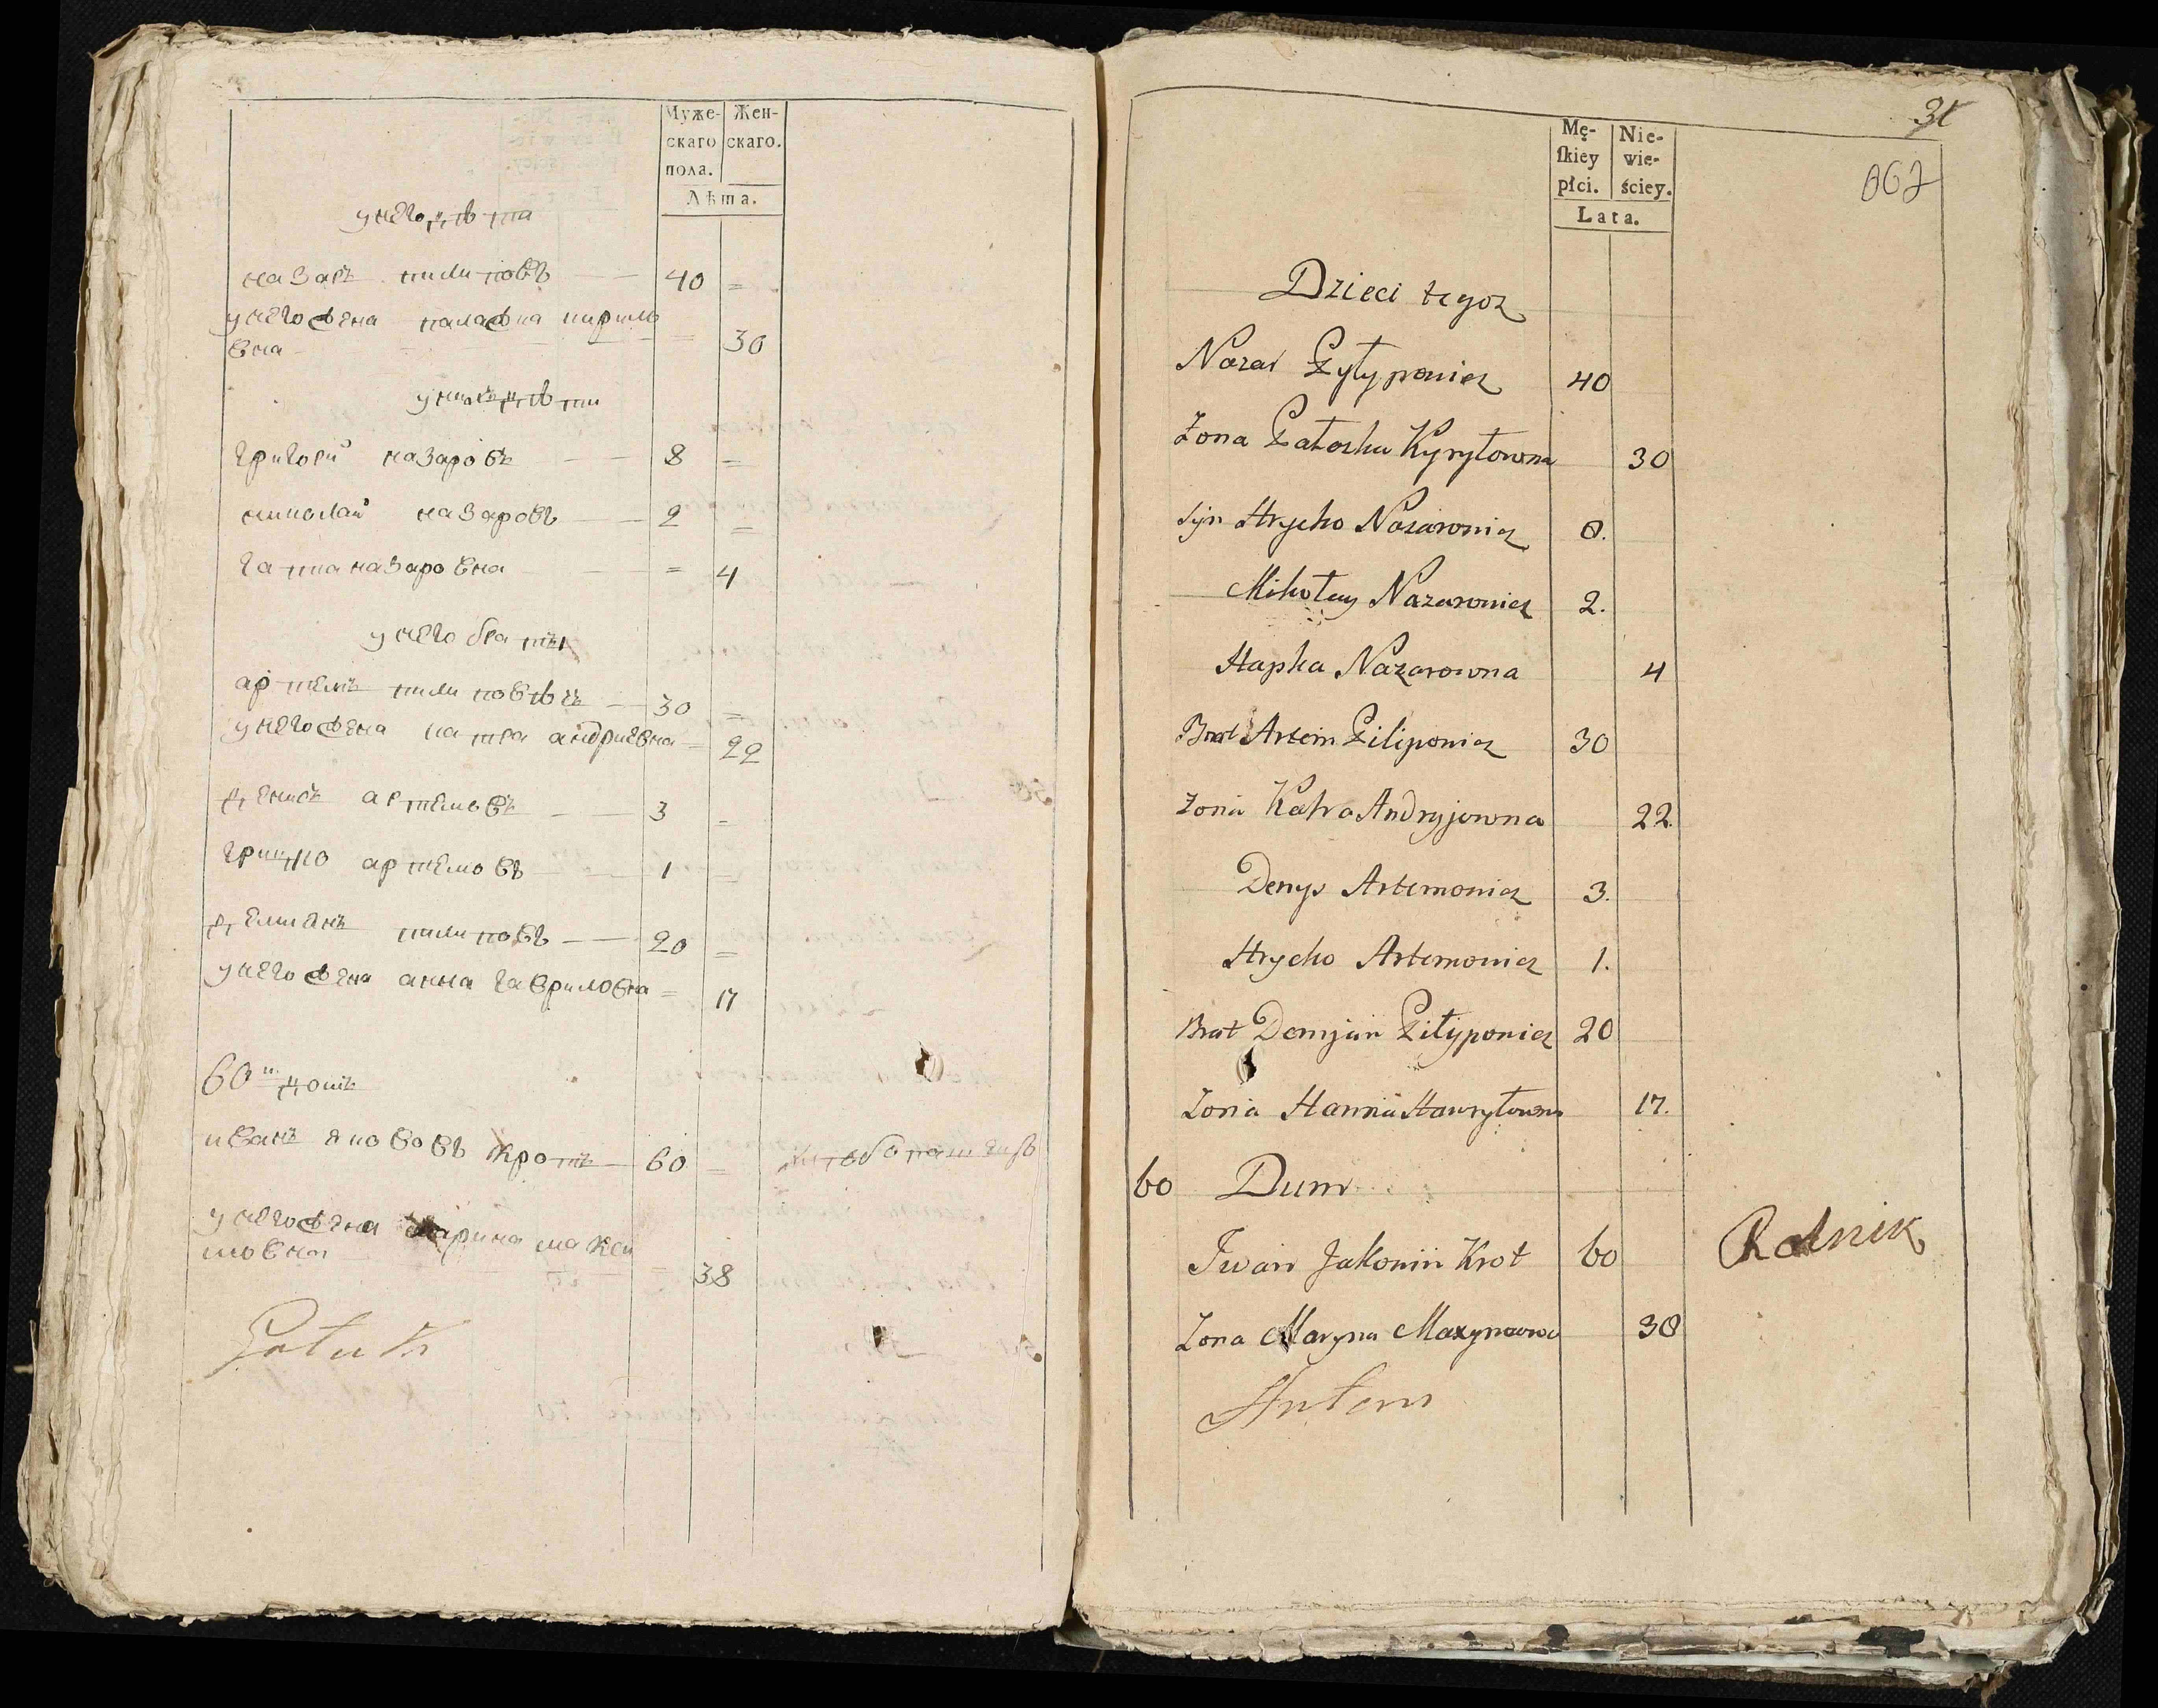 Муже- Жен-
скаго скаго.
пола.
Лѣта.
у него дѣти
назаръ пилиповъ 40 =
у него жена палажка кирило
вна = 30
у нихъ дѣти
григорий назаровъ 8 =
николай назаровъ 2 =
гапка назаровна = 4
у него браты
артемъ пилиповъ 30 =
у него жена катра андриевна = 22
денисъ артемовъ 3 =
грицко артемовъ 1 =
демианъ пилиповъ 20 =
у него жена анна гавриловна = 17
60й домъ
иванъ якововъ кротъ 60 = хлѣбопашецъ
у него жена марина макси
мовна = 38
31
067
Mę- Nie-
skiey wie-
płci. ściey.
Lata.
Dzieci tegoz
Nazar Pyłypowicz 40
Zona Pałaszka Kyryłowna 30
Syn Hrycko Nazarowicz 8.
Mikołay Nazarowicz 2.
Hapka Nazarowna 4
Brat Artem Pilipowicz 30
Zona Katra Andryjowna 22.
Denys Artemowicz 3.
Hrycko Artemowicz 1.
Brat Demjan Piłypowicz 20
Zona Hanna Hawryłowna 17.
60 Dum
Iwan Jakowin Krot 60 Rolnik
Zona Maryna Maxymowna 38